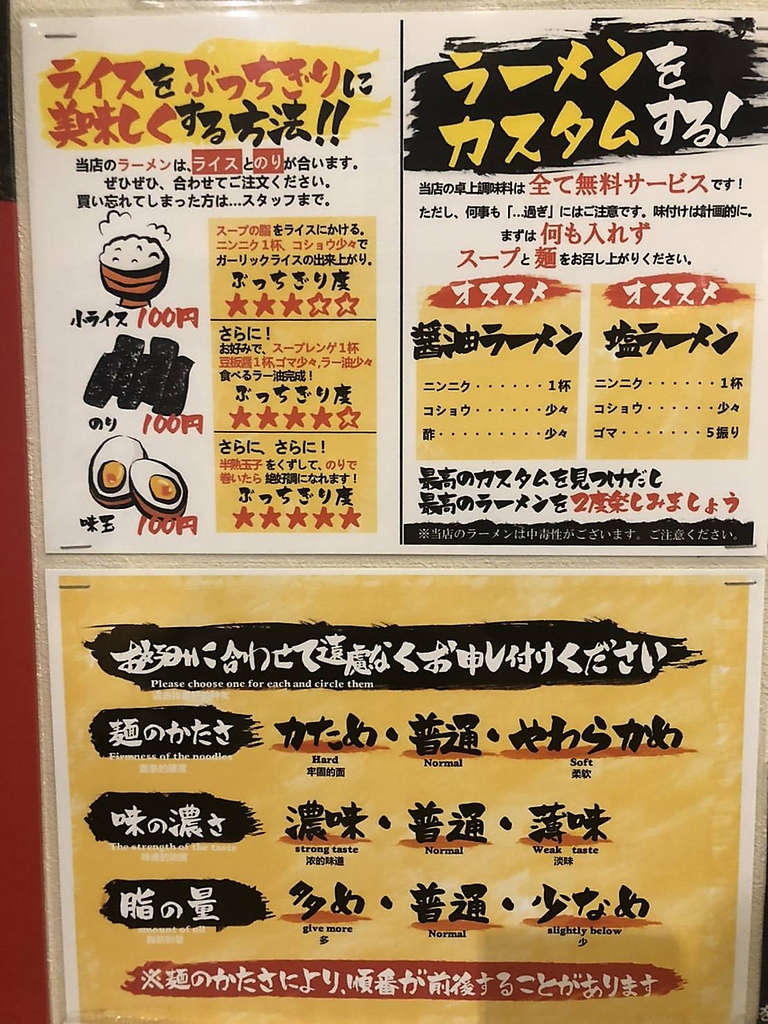 ライスをぶっちぎりに
美味しくする方法!!
当店のラーメンは、ライスとのりが合います。
ぜひぜひ、合わせてご注文ください。
買い忘れてしまった方は…スタッフまで。
小ライス 100円
スープの脂をライスにかける。
ニンニク1杯、コショウ少々で
ガーリックライスの出来上がり。
ぶっちぎり度
★★★☆☆
のり 100円
さらに！
お好みで、スープレンゲ1杯
豆板醤1杯,ゴマ少々,ラー油少々
食べるラー油完成！
ぶっちぎり度
★★★★☆
味玉 100円
さらに、さらに！
半熟玉子をくずして、のりで
巻いたら 絶好調になれます！
ぶっちぎり度
★★★★★
ラーメンを
カスタムする!
当店の卓上調味料は 全て無料サービスです！
ただし、何事も「…過ぎ」にはご注意です。味付けは計画的に。
まずは 何も入れず
スープと麺をお召し上がりください。
オススメ
醤油ラーメン
ニンニク・・・・・・1杯
コショウ・・・・・・少々
酢・・・・・・・・・少々
オススメ
塩ラーメン
ニンニク・・・・・・1杯
コショウ・・・・・・少々
ゴマ・・・・・・・5振り
最高のカスタムを見つけだし
最高のラーメンを2度楽しみましょう
※当店のラーメンは中毒性がございます。ご注意ください。
お好みに合わせて遠慮なくお申し付けください
Please choose one for each and circle them
麺のかたさ
Firmness of the noodles
かため・普通・やわらかめ
Hard Normal Soft
牢固的面 柔软
味の濃さ
The strength of the taste
濃味・普通・薄味
strong taste Normal Weak taste
浓的味道 淡味
脂の量
amount of oil
多め・普通・少なめ
give more Normal slightly below
多 少
※麺のかたさにより、順番が前後することがあります